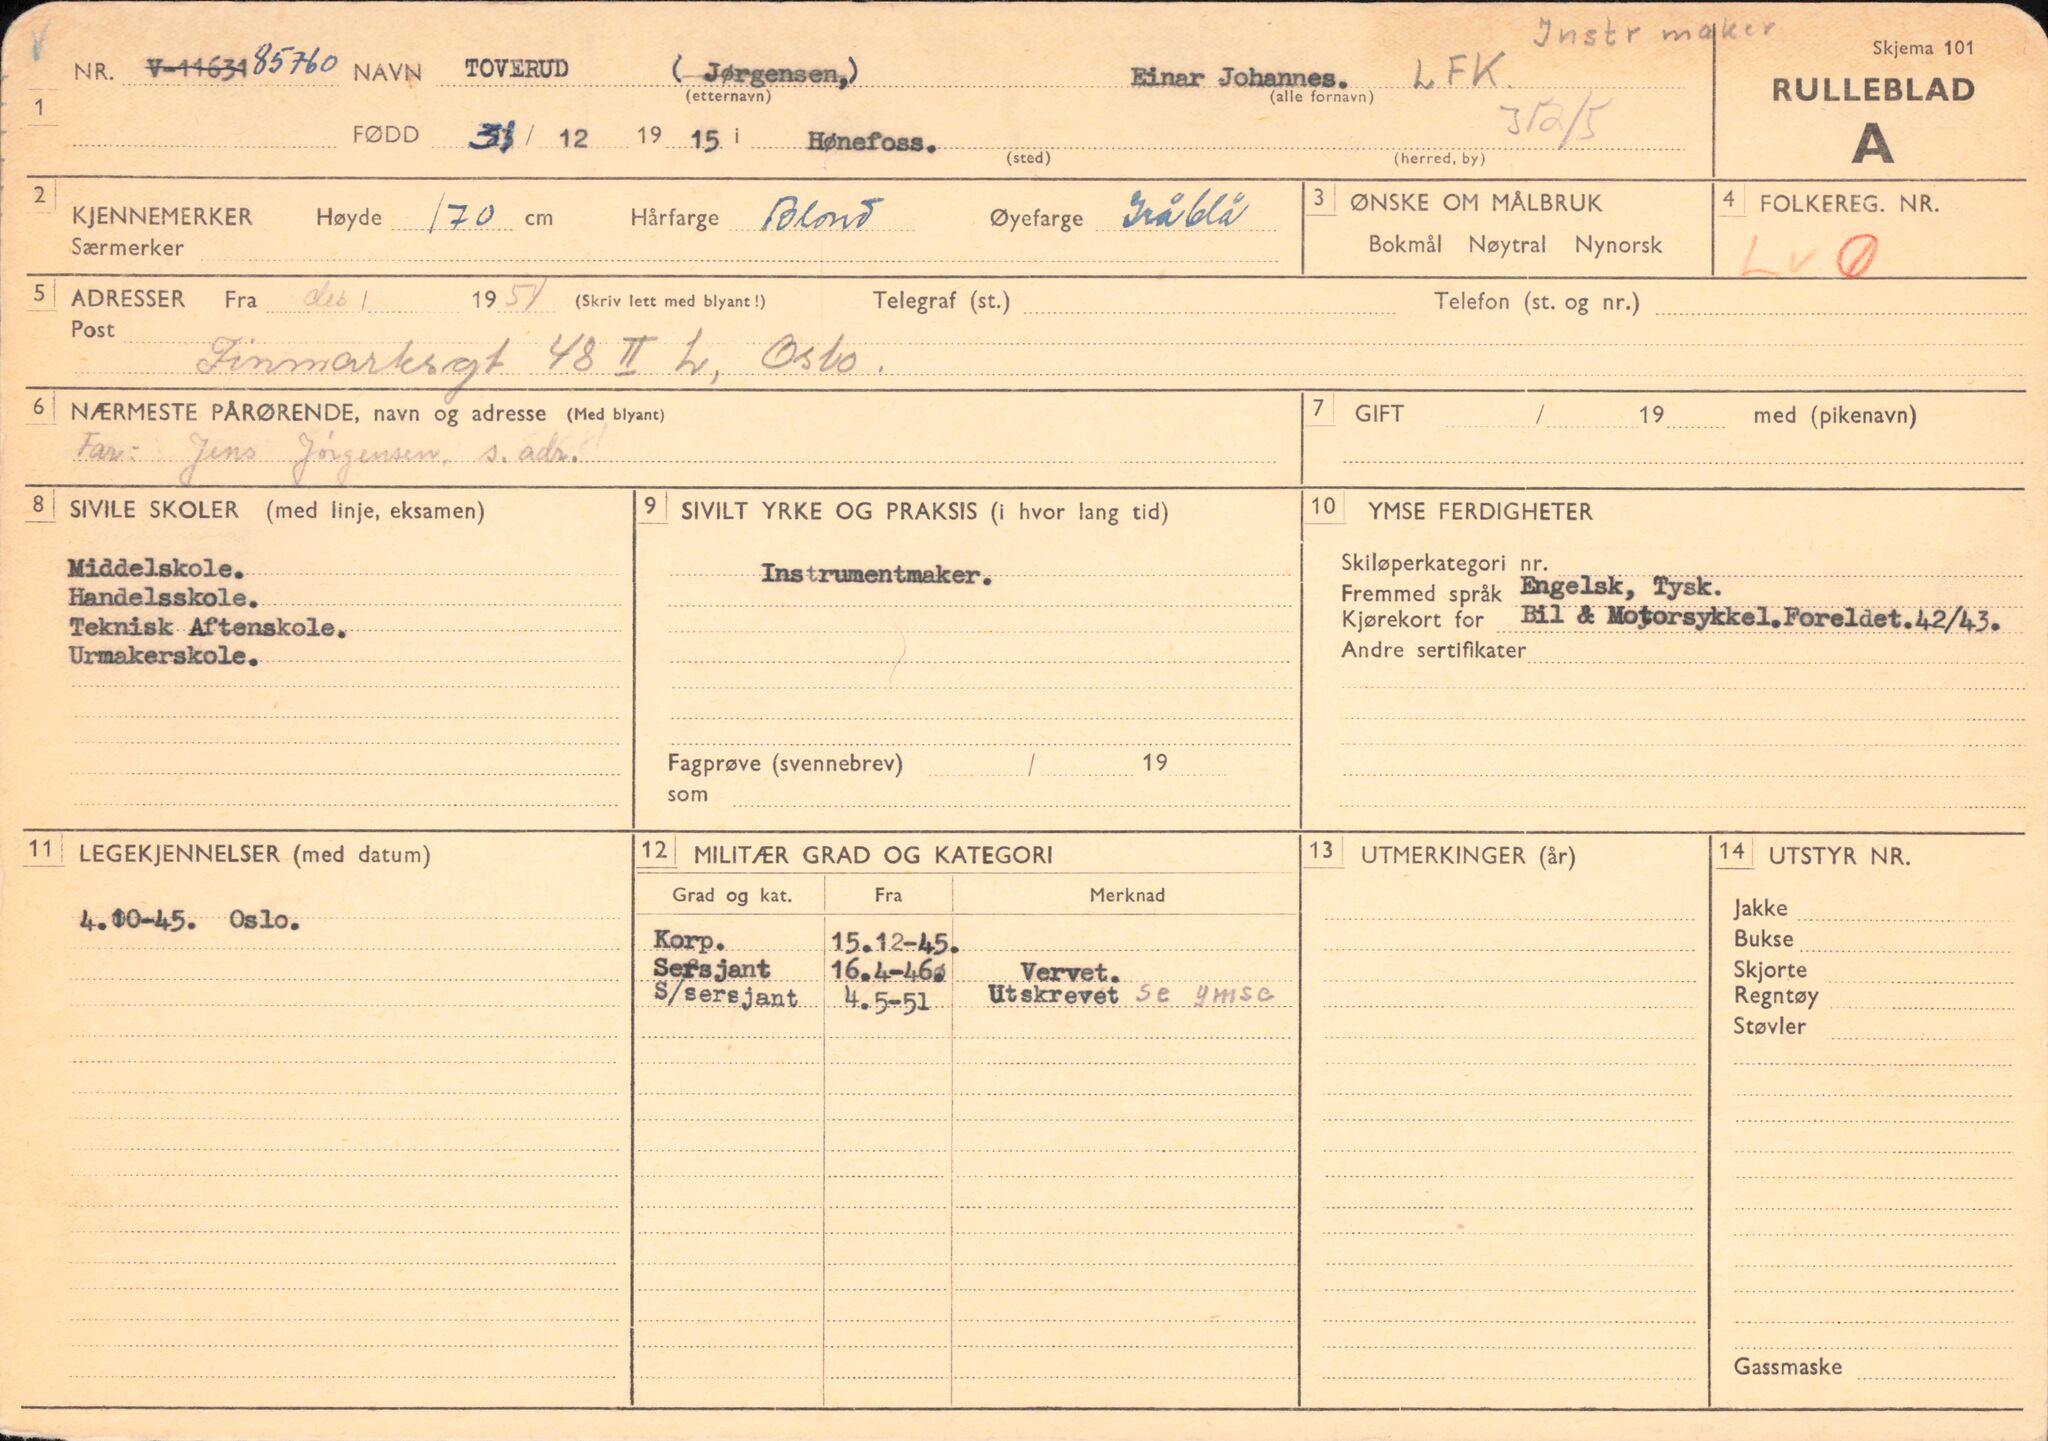 Instr maker
Skjema 101
NR. V-11631 85760 NAVN TOVERUD (Jørgensen,) Einar Johannes. LFK.
(etternavn) (alle fornavn)
RULLEBLAD
A
1
FØDD / 12 1915 i Hønefoss. 352/5
(sted) (herred, by)
2 KJENNEMERKER Høyde 170 cm Hårfarge Blond Øyefarge Gråblå
Særmerker
3 ØNSKE OM MÅLBRUK
Bokmål Nøytral Nynorsk
4 FOLKEREG. NR.
Lv Ø
5 ADRESSER Fra des / 1951 (Skriv lett med blyant!) Telegraf (st.) Telefon (st. og nr.)
Post
Finmarksgt 48 II L, Oslo.
6 NÆRMESTE PÅRØRENDE, navn og adresse (Med blyant)
Far: Jens Jørgensen, s. adr.
7 GIFT / 19 med (pikenavn)
8 SIVILE SKOLER (med linje, eksamen)
Middelskole.
Handelsskole.
Teknisk Aftenskole.
Urmakerskole.
9 SIVILT YRKE OG PRAKSIS (i hvor lang tid)
Instrumentmaker.
Fagprøve (svennebrev) / 19
som
10 YMSE FERDIGHETER
Skiløperkategori nr.
Fremmed språk Engelsk, Tysk.
Kjørekort for Bil & Motorsykkel.Foreldet.42/43.
Andre sertifikater
11 LEGEKJENNELSER (med datum)
4.10-45. Oslo.
12 MILITÆR GRAD OG KATEGORI
Grad og kat. Fra Merknad
Korp. 15.12-45.
Sersjant 16.4-46. Vervet.
S/sersjant 4.5-51 Utskrevet se ymse
13 UTMERKINGER (år)
14 UTSTYR NR.
Jakke
Bukse
Skjorte
Regntøy
Støvler
Gassmaske